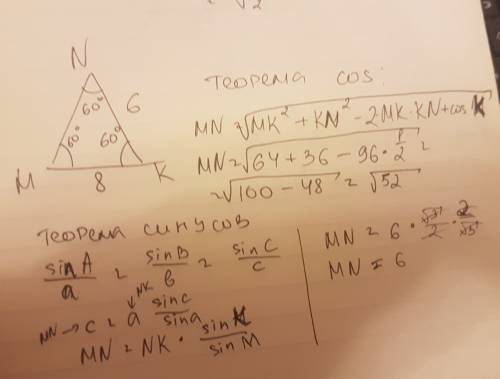 √2
N
60°
6
60°
60°
M
8
K
теорема cos:
MN = √MK² + KN² - 2MK·KN + cos K
MN = √64 + 36 - 96 · 1/2 =
= √100 - 48 = √52
теорема синусов
sin A/a = sin B/b = sin C/c
MN → c = a sin c/sin a
MK
MN = NK · sin K/sin M
MN = 6 · √3/2 · 2/√3
MN = 6